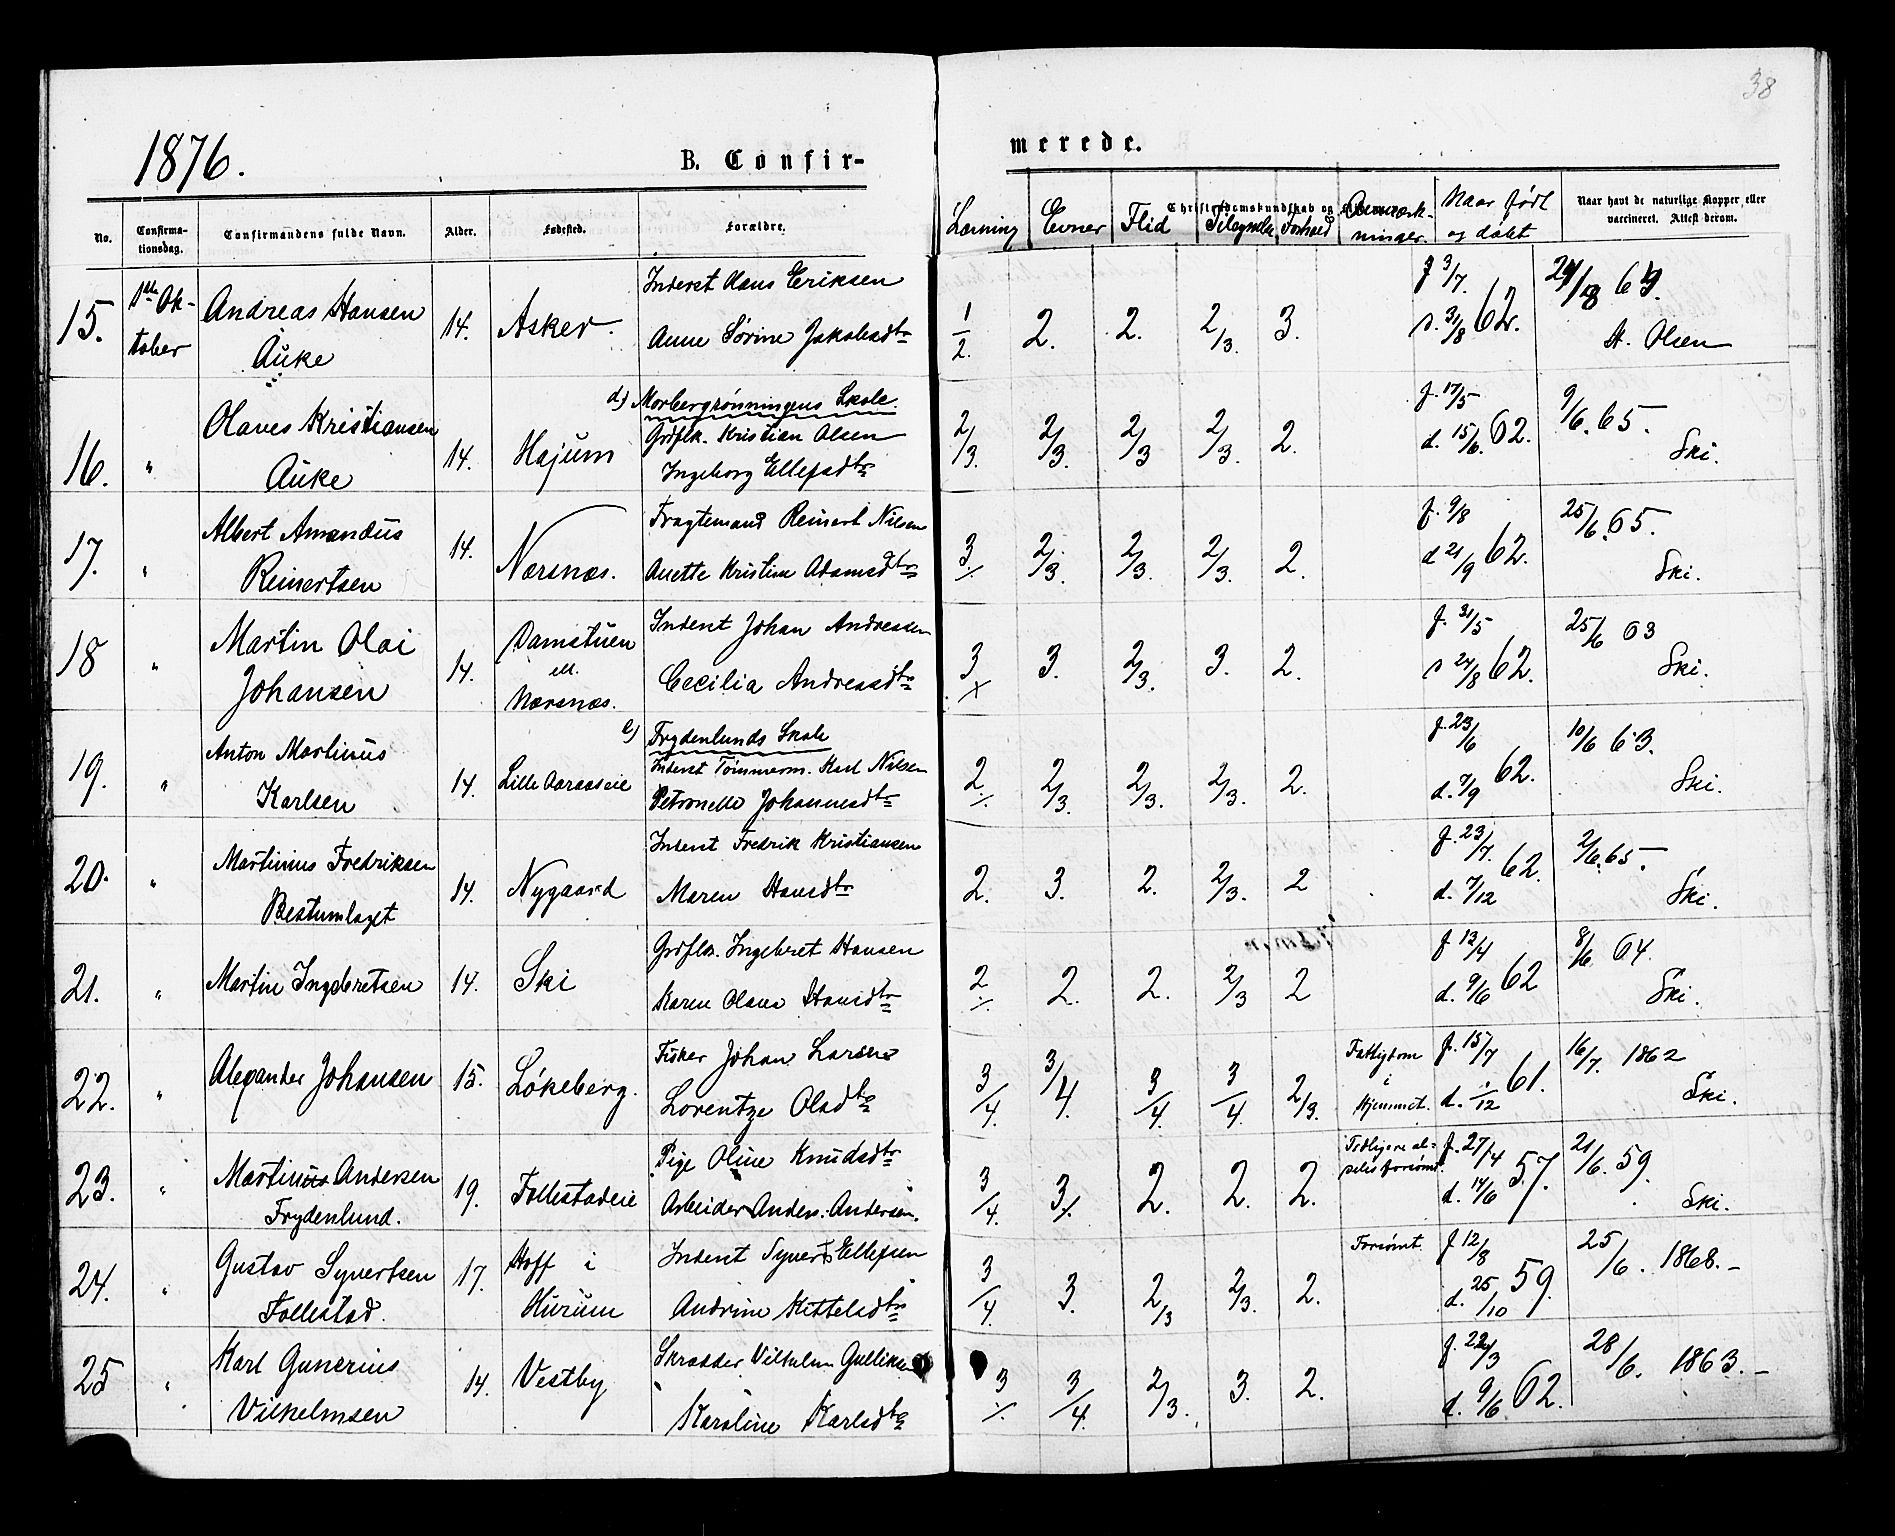 38
1876.
B. Confir-
merede.
No.
Confirma-
tionsdag.
Confirmandens fulde Navn.
Alder.
Fødested.
Forældre.
Lærning
Evner
Flid
Christendomskundskab og
Tilegnelse
Forhold
Anmærk-
ninger.
Naar født
og døbt
Naar havt de naturlige Kopper eller
vaccineret. Attest derom.
15.
1ste Ok-
tober
Andreas Hansen
Auke
14.
Asker.
Inderst Hans Eriksen
Anne Sørine Jakobsdtr
1/2.
2.
2.
2/3.
3.
f 3/7.
d. 31/8 62.
69.
A. Olsen
d) Morbergrønningens Skole.
16.
"
Olaves Kristiansen
Auke
14.
Højum
Grdflk. Kristian Olsen
Ingeborg Ellefsdtr
2/3.
2/3.
2/3
2/3.
2.
f. 17/5
d. 15/6. 62.
9/6. 65.
Ski.
17.
"
Albert Amandus
Reinertsen
14.
Nærsnæs.
Fragtemand Reinert Nilsen
Anette Kristine Adamsdtr
3/.
2/3.
2/3.
2/3.
2.
f. 9/8
d 21/9 62.
25/6. 65.
Ski.
18
"
Martin Olai
Johansen
14.
Damstuen
ell.
Nærsnæs.
Inderst Johan Andreasen
Cecilia Andreasdtr
3/x
3.
2/3.
3.
2.
f. 31/5
d 24/8 62.
25/6 63
Ski.
e) Frydenlunds Skole
19.
"
Anton Martinus
Karlsen
14.
Lille Aaraaseie
Inderst Tømmerm. Karl Nilsen
Petronelle Johannesdtr
2/.
2/3.
2/3.
2/3.
2.
f. 23/6
d. 7/9 62.
10/6 63.
Ski.
20.
"
Martinius Fredriksen
Bestumlaget
14.
Nygaard
Inderst Fredrik Kristiansen
Maren Hansdtr
2.
3.
2.
2/3.
2
f. 23/7.
d. 7/12 62.
2/6. 65.
Ski.
21.
"
Martin Ingebretsen
14.
Ski
Grdflk. Ingebret Hansen
Karen Olava Hansdtr
2/.
2.
2.
2/3
2
f 13/4
d. 9/6 62
8/6 64.
Ski.
22.
"
Alexander Johansen
15.
Løkeberg.
Fisker Johan Larsen
Lorentze Olsdtr
3/4.
3/4.
3/4.
3/4.
2/3.
Fattigdom
i
Hjemmet.
f. 15/7
d. 1/12 61.
16/7. 1862
Ski.
23.
"
Martinius Andersen
Frydenlund.
19.
Follestadeie
Pige Oline Knudsdtr
Arbeider Anders Andersen.
3/4.
3/.
2.
2.
2.
Tidligere al-
deles forsømt.
f. 27/4
d. 14/6 57.
21/6. 59.
Ski.
24.
"
Gustav Syvertsen
Follestad.
17.
Hoff i
Hurum
Inderst Syvert Ellefsen
Andrine Kittelsdtr
3/4.
3.
2/3
2/3.
2.
Forsømt.
f. 12/8
d. 25/10 59.
25/6. 1868. -
25
"
Karl Gunerius
Vilhelmsen
14.
Vestby
Skrædder Vilhelm Gulliksen
Karoline Karlsdtr
3/.
3/4.
2/3.
3.
2.
f. 22/3
d. 9/6 62.
28/6. 1863. -